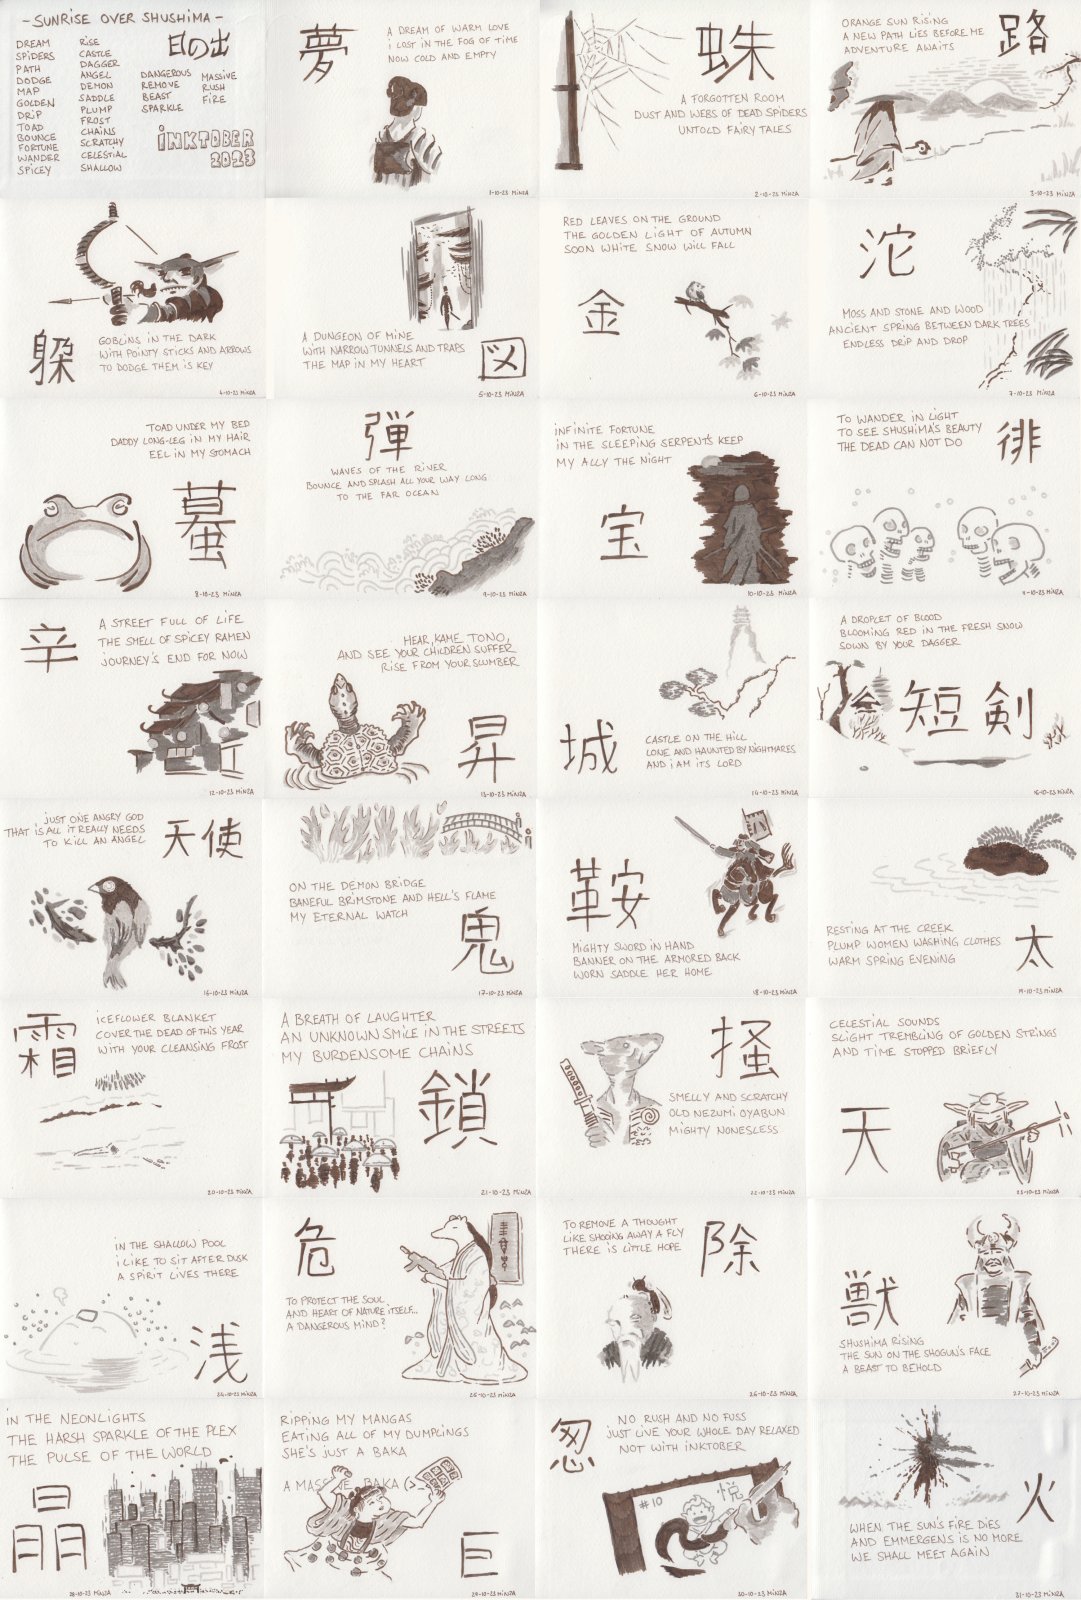 -SUNRISE OVER SHUSHIMA-
日の出
DREAM
SPIDERS
PATH
DODGE
MAP
GOLDEN
DRIP
TOAD
BOUNCE
FORTUNE
WANDER
SPICEY
RISE
CASTLE
DAGGER
ANGEL
DEMON
SADDLE
PLUMP
FROST
CHAINS
SCRATCHY
CELESTIAL
SHALLOW
DANGEROUS
REMOVE
BEAST
SPARKLE
MASSIVE
RUSH
FIRE
INKTOBER
2023
夢
A DREAM OF WARM LOVE
I LOST IN THE FOG OF TIME
NOW COLD AND EMPTY
1-10-23 MINZA
蛛
A FORGOTTEN ROOM
DUST AND WEBS OF DEAD SPIDERS
UNTOLD FAIRY TALES
2-10-23 MINZA
ORANGE SUN RISING
A NEW PATH LIES BEFORE ME
ADVENTURE AWAITS
路
3-10-23 MINZA
躲
GOBLINS IN THE DARK
WITH POINTY STICKS AND ARROWS
TO DODGE THEM IS KEY
4-10-23 MINZA
A DUNGEON OF MINE
WITH NARROW TUNNELS AND TRAPS
THE MAP IN MY HEART
図
5-10-23 MINZA
RED LEAVES ON THE GROUND
THE GOLDEN LIGHT OF AUTUMN
SOON WHITE SNOW WILL FALL
金
6-10-23 MINZA
沱
MOSS AND STONE AND WOOD
ANCIENT SPRING BETWEEN DARK TREES
ENDLESS DRIP AND DROP
7-10-23 MINZA
TOAD UNDER MY BED
DADDY LONG-LEG IN MY HAIR
EEL IN MY STOMACH
蟇
8-10-23 MINZA
弾
WAVES OF THE RIVER
BOUNCE AND SPLASH ALL YOUR WAY LONG
TO THE FAR OCEAN
9-10-23 MINZA
INFINITE FORTUNE
IN THE SLEEPING SERPENT'S KEEP
MY ALLY THE NIGHT
宝
10-10-23 MINZA
TO WANDER IN LIGHT
TO SEE SHUSHIMA'S BEAUTY
THE DEAD CAN NOT DO
徘
11-10-23 MINZA
辛
A STREET FULL OF LIFE
THE SMELL OF SPICEY RAMEN
JOURNEY'S END FOR NOW
12-10-23 MINZA
HEAR, KAME TONO,
AND SEE YOUR CHILDREN SUFFER
RISE FROM YOUR SLUMBER
昇
13-10-23 MINZA
城
CASTLE ON THE HILL
LONE AND HAUNTED BY NIGHTMARES
AND I AM ITS LORD
14-10-23 MINZA
A DROPLET OF BLOOD
BLOOMING RED IN THE FRESH SNOW
SOWN BY YOUR DAGGER
短剣
16-10-23 MINZA
JUST ONE ANGRY GOD
THAT IS ALL IT REALLY NEEDS
TO KILL AN ANGEL
天使
16-10-23 MINZA
ON THE DEMON BRIDGE
BANEFUL BRIMSTONE AND HELL'S FLAME
MY ETERNAL WATCH
鬼
17-10-23 MINZA
鞍
MIGHTY SWORD IN HAND
BANNER ON THE ARMORED BACK
WORN SADDLE HER HOME
18-10-23 MINZA
RESTING AT THE CREEK
PLUMP WOMEN WASHING CLOTHES
WARM SPRING EVENING
太
19-10-23 MINZA
霜
ICEFLOWER BLANKET
COVER THE DEAD OF THIS YEAR
WITH YOUR CLEANSING FROST
20-10-23 MINZA
A BREATH OF LAUGHTER
AN UNKNOWN SMILE IN THE STREETS
MY BURDENSOME CHAINS
鎖
21-10-23 MINZA
掻
SMELLY AND SCRATCHY
OLD NEZUMI OYABUN
MIGHTY NONESLESS
22-10-23 MINZA
CELESTIAL SOUNDS
SLIGHT TREMBLING OF GOLDEN STRINGS
AND TIME STOPPED BRIEFLY
天
23-10-23 MINZA
IN THE SHALLOW POOL
I LIKE TO SIT AFTER DUSK
A SPIRIT LIVES THERE
浅
24-10-23 MINZA
危
TO PROTECT THE SOUL
AND HEART OF NATURE ITSELF...
A DANGEROUS MIND?
25-10-23 MINZA
TO REMOVE A THOUGHT
LIKE SHOOING AWAY A FLY
THERE IS LITTLE HOPE
除
26-10-23 MINZA
獣
SHUSHIMA RISING
THE SUN ON THE SHOGUN'S FACE
A BEAST TO BEHOLD
27-10-23 MINZA
IN THE NEONLIGHTS
THE HARSH SPARKLE OF THE PLEX
THE PULSE OF THE WORLD
晶
28-10-23 MINZA
RIPPING MY MANGAS
EATING ALL OF MY DUMPLINGS
SHE'S JUST A BAKA
A MASSIVE BAKA
巨
29-10-23 MINZA
怱
NO RUSH AND NO FUSS
JUST LIVE YOUR WHOLE DAY RELAXED
NOT WITH INKTOBER
#10
悦
30-10-23 MINZA
火
WHEN THE SUN'S FIRE DIES
AND EMMERGENS IS NO MORE
WE SHALL MEET AGAIN
31-10-23 MINZA